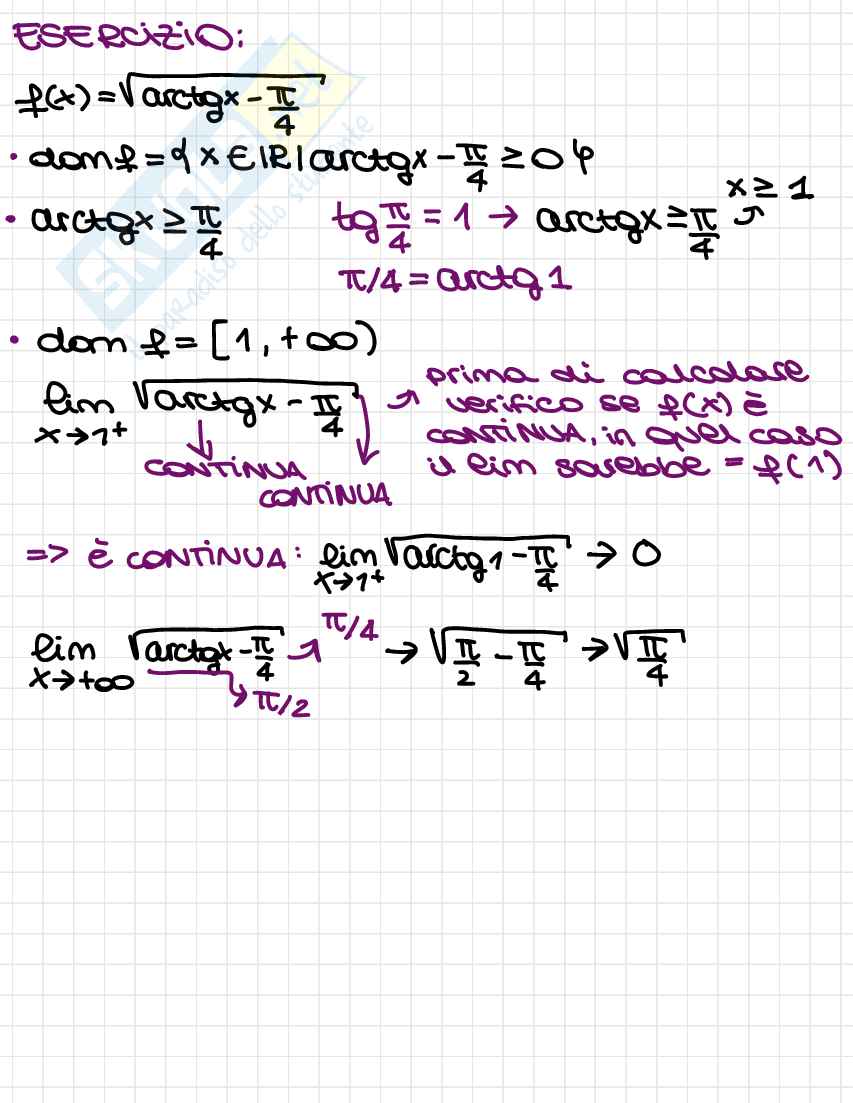 ESERCIZIO:
f(x) = √(arctgx - π/4)
• dom f = { x ∈ ℝ | arctgx - π/4 ≥ 0 }
• arctgx ≥ π/4   tg π/4 = 1 → arctgx ≥ π/4 ⤴ x ≥ 1
π/4 = arctg 1
• dom f = [1, +∞)
lim x→1⁺ √(arctgx - π/4)
CONTINUA
CONTINUA
prima di calcolare
verifico se f(x) è
CONTINUA, in quel caso
il lim sarebbe = f(1)
=> è CONTINUA: lim x→1⁺ √(arctg1 - π/4) → 0
lim x→+∞ √(arctgx - π/4) π/4 → √(π/2 - π/4) → √(π/4)
π/2
SKUOLA.net
il paradiso dello studente